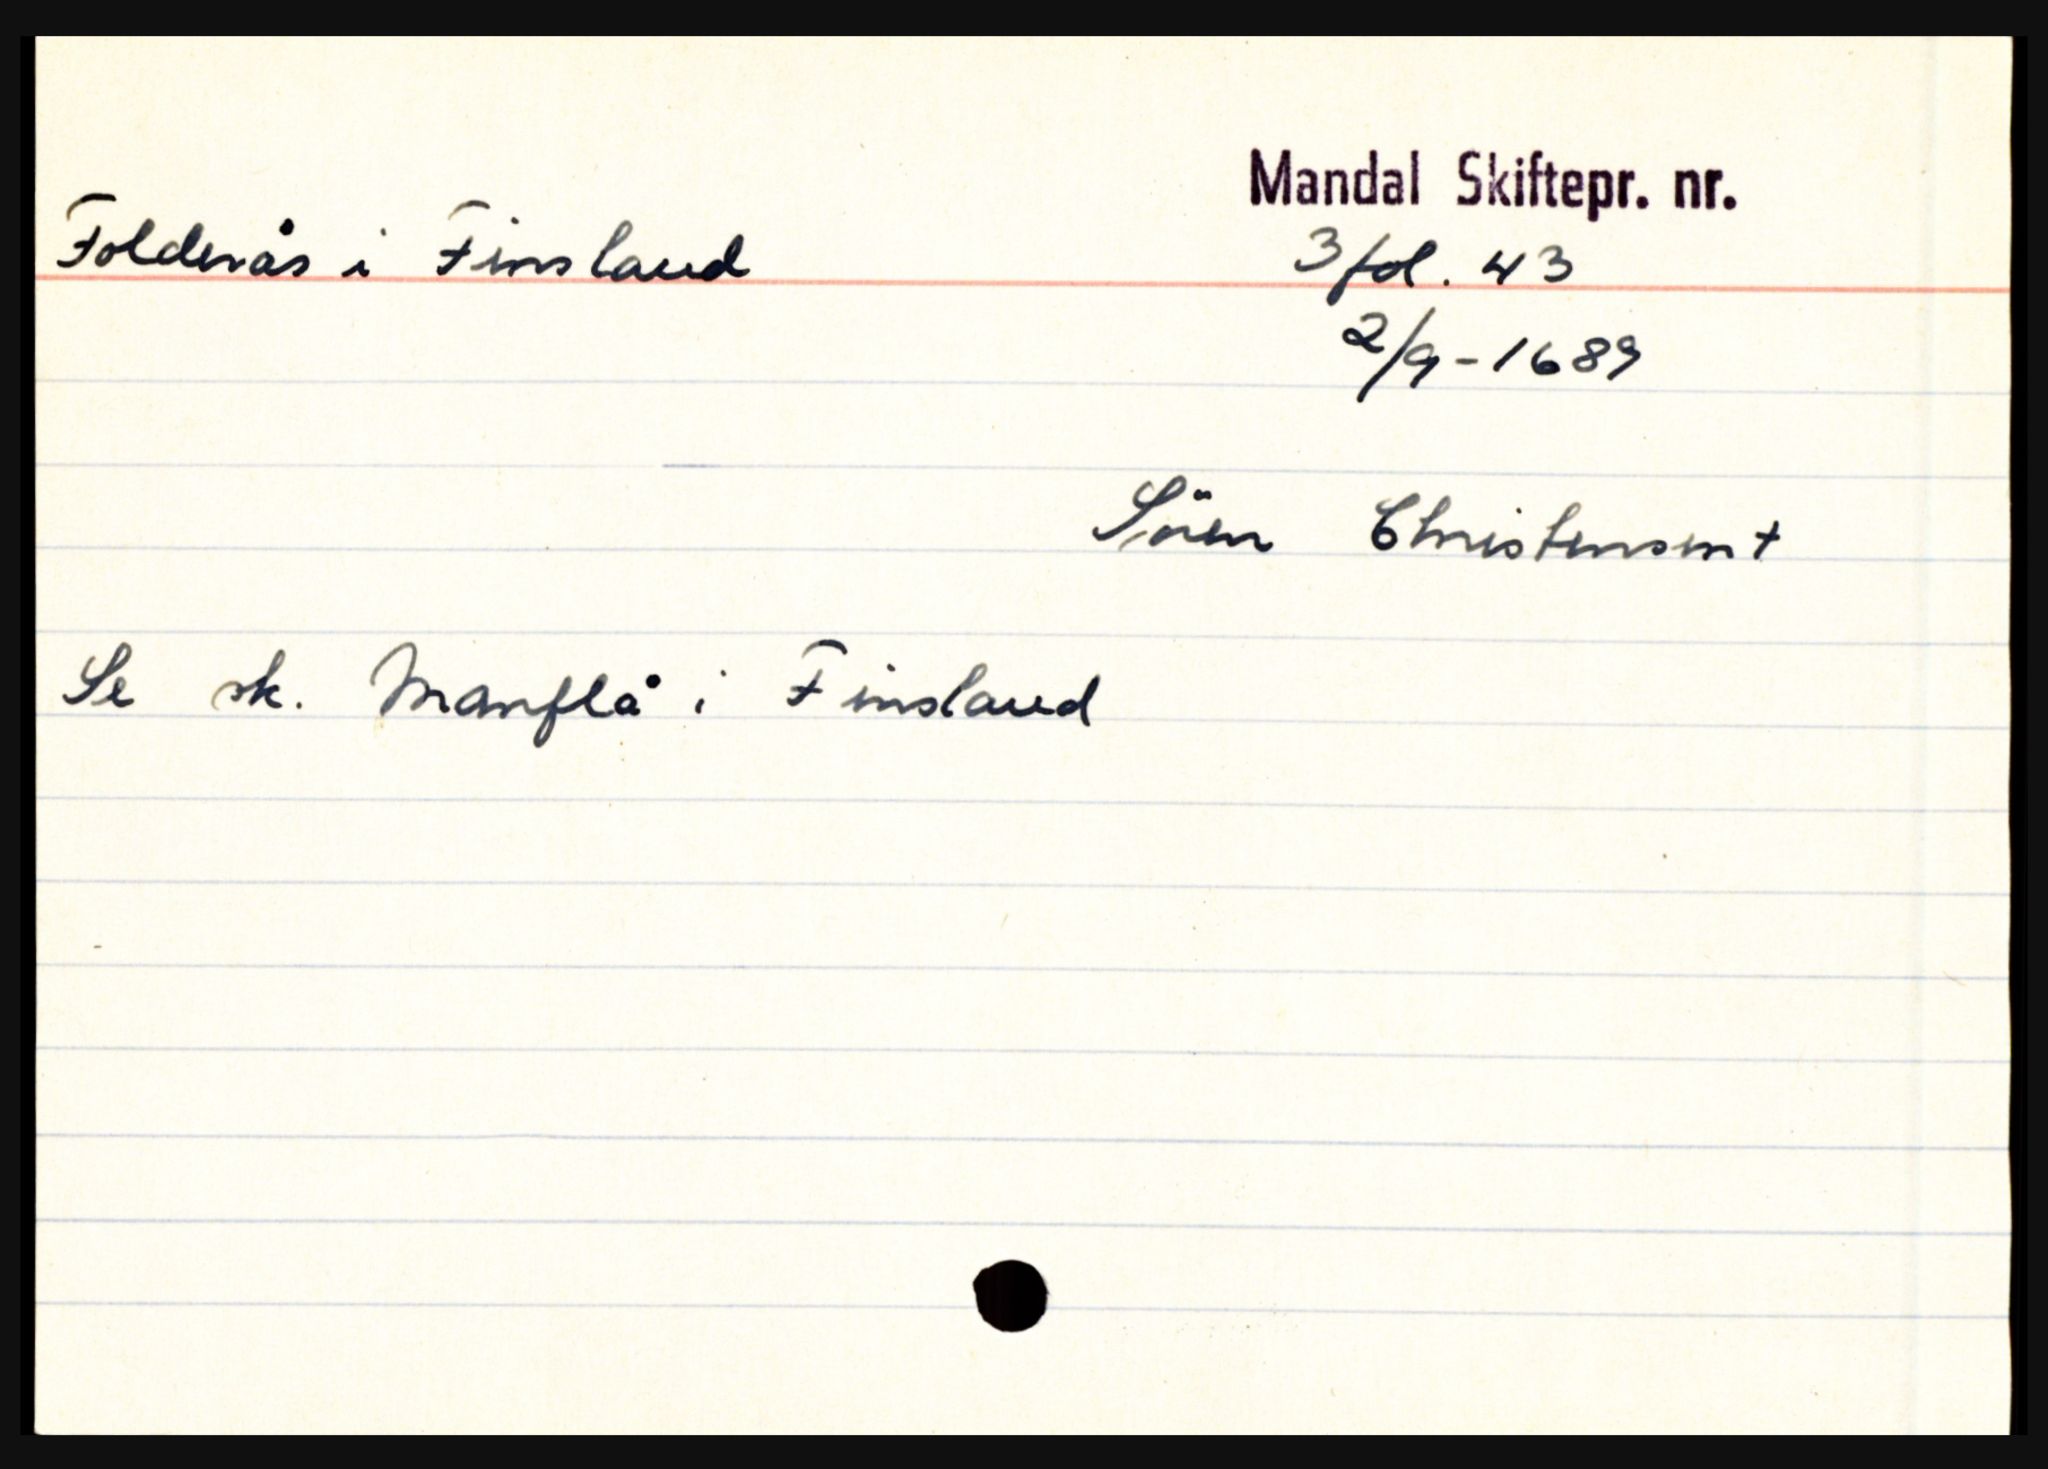 Mandal Skiftepr. nr.
Foldenås i Finsland 3 fol. 43
2/9-1689
Sören Christensen †
Se sk. Manflå i Finsland